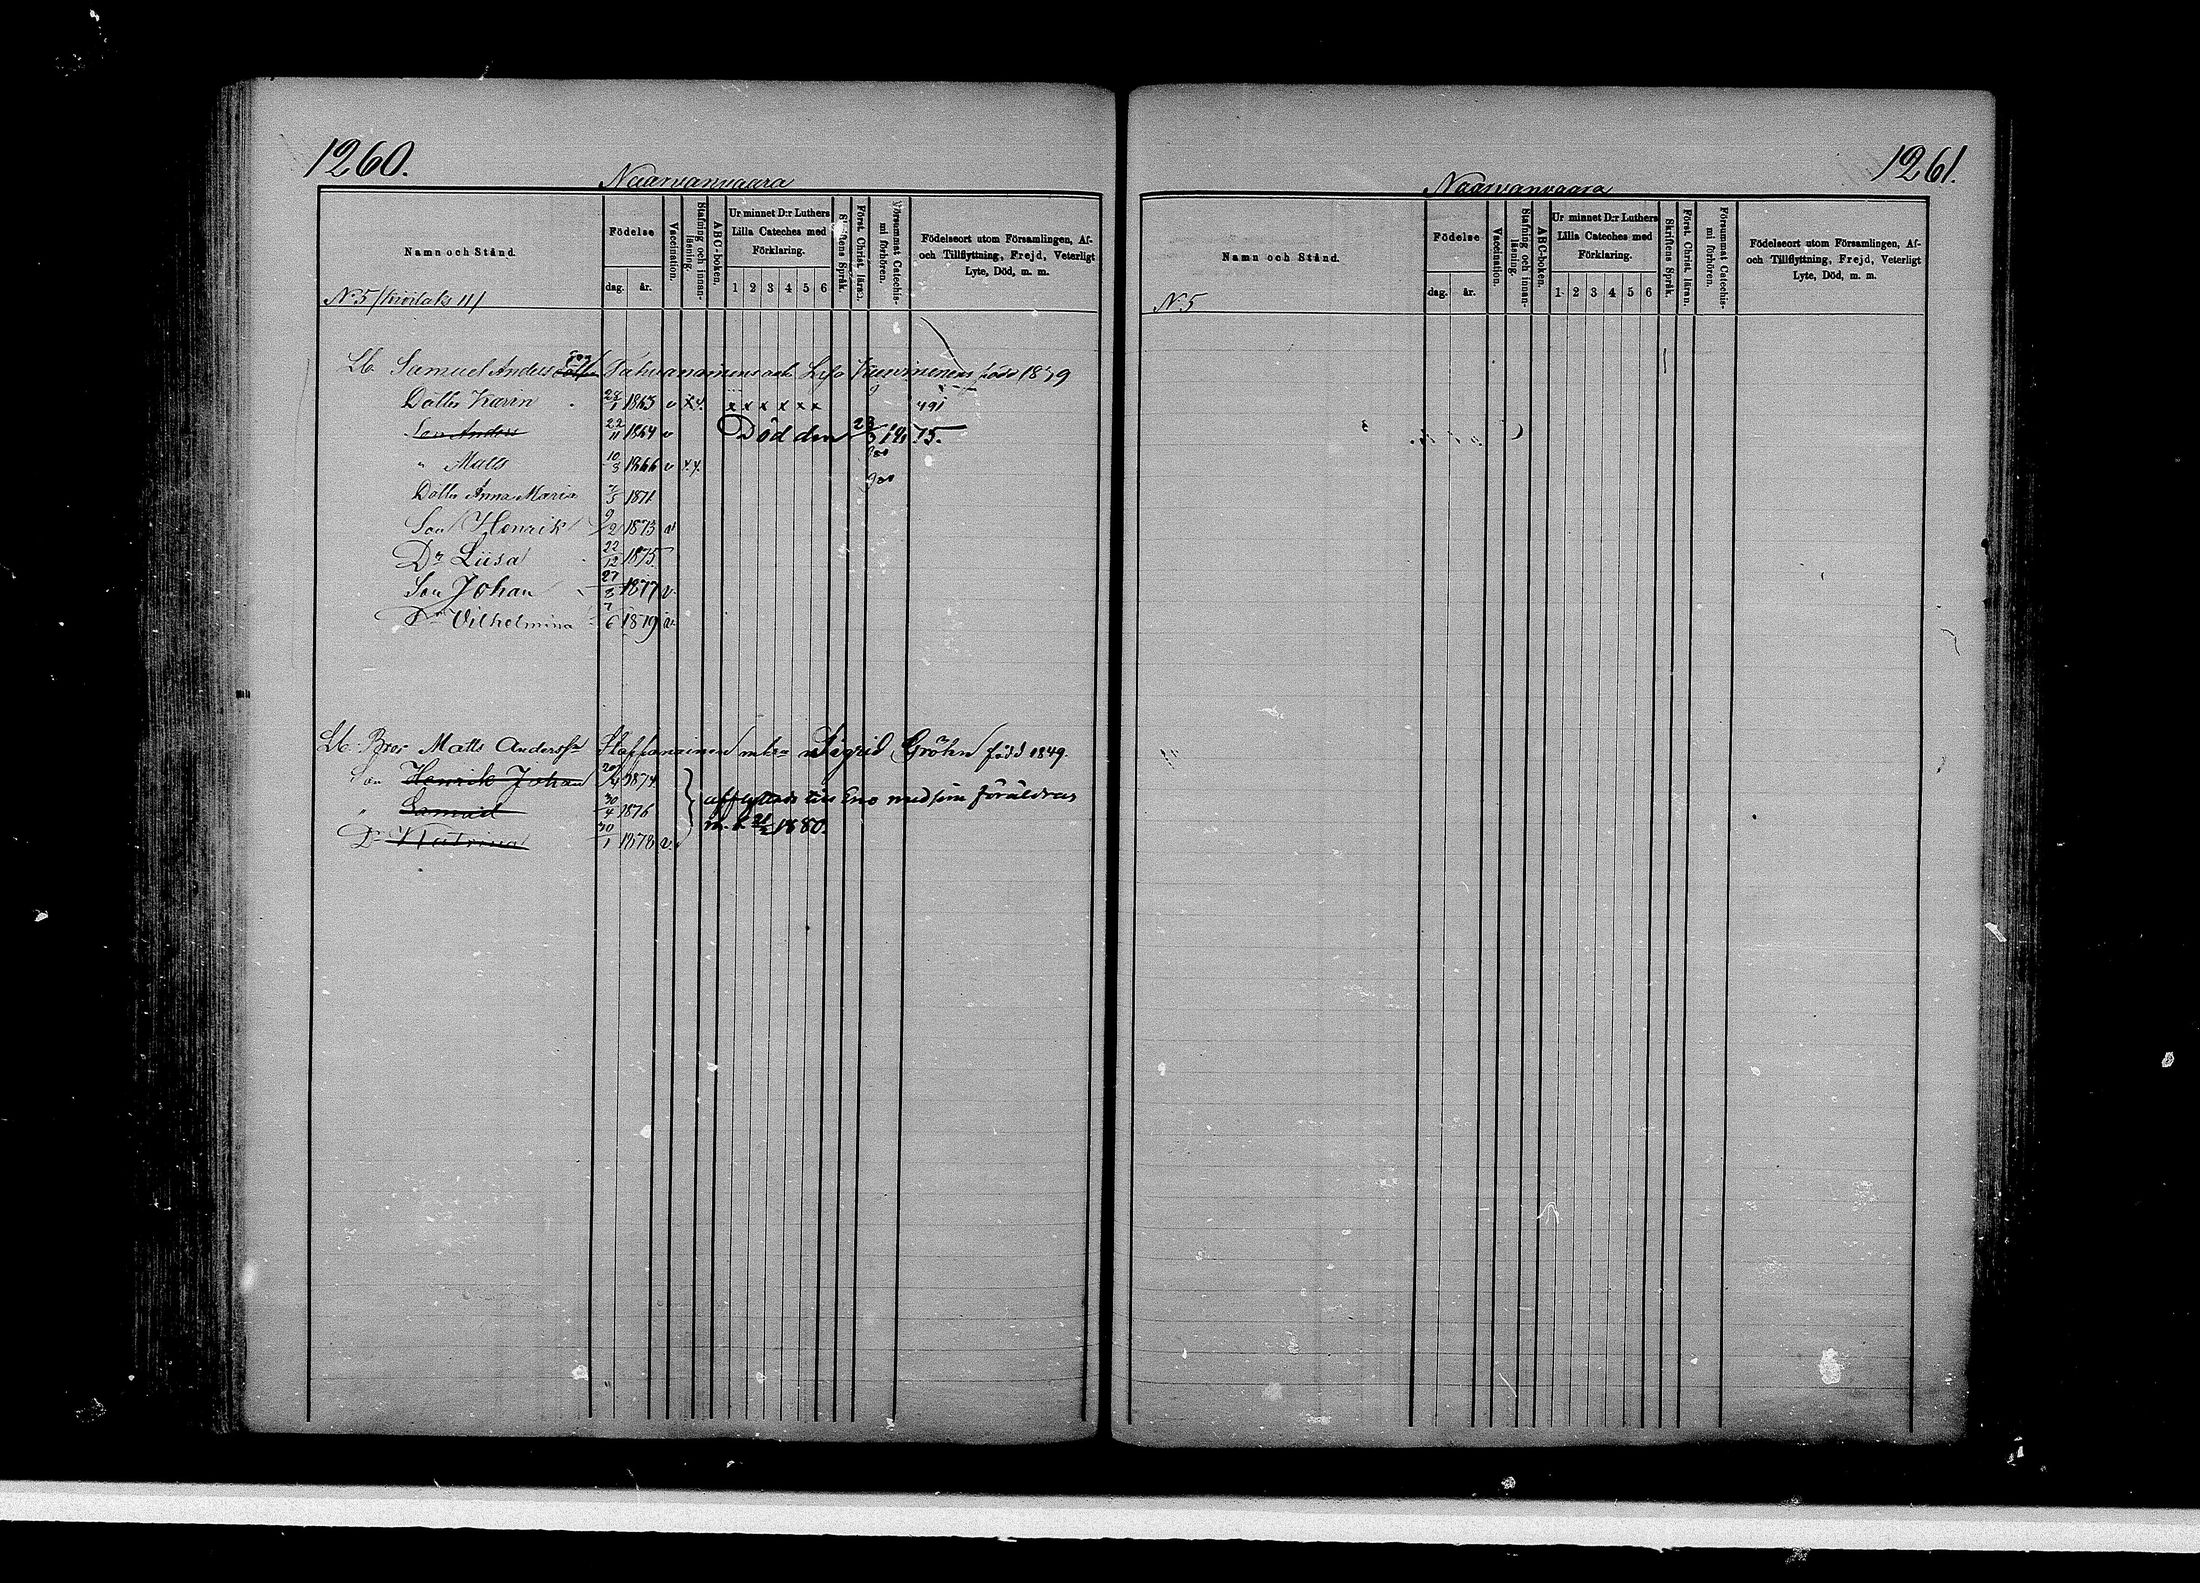 1260.
Naarvanvaara
Namn och Stånd.
Födelse
dag.
år.
Vaccination.
Stafning och innan-
läsning.
ABC-boken.
Ur minnet D:r Luthers
Lilla Cateches med
Förklaring.
1 2 3 4 5 6
Skriftens Språk.
Först. Christ. läran.
Försummat Catechis-
mi förhören.
Födelseort utom Församlingen, Af-
och Tillflyttning, Frejd, Veterligt
Lyte, Död, m. m.
N:5
Lb. Samuel Anders son född 1839
Dotter Karin 1863 v x x x x x x 491
Son Anders 22/11 1864 v Död den 1875.
" Matts 10/3 1866 v x x
Dotter Anna Maria 1871
Son Henrik 9/2 1873 v
Dr Liisa 22/12 1875
Son Johan 27/8 1877 v.
Dr Vilhelmina 7/6 1879 v.
Lb. Bror Matts Anderss. Staffanainen Sigrid Gröhn född 1849.
Son Henrik Johan 1874
" Samuel 30/4 1876 afflyttade till Eno med sin föräldrar
Dr Katrina 30/1 1878 v. 1880.
1261.
Naarvanvaara
Namn och Stånd.
Födelse
dag.
år.
Vaccination.
Stafning och innan-
läsning.
ABC-boken.
Ur minnet D:r Luthers
Lilla Cateches med
Förklaring.
1 2 3 4 5 6
Skriftens Språk.
Först. Christ. läran.
Försummat Catechis-
mi förhören.
Födelseort utom Församlingen, Af-
och Tillflyttning, Frejd, Veterligt
Lyte, Död, m. m.
N:5